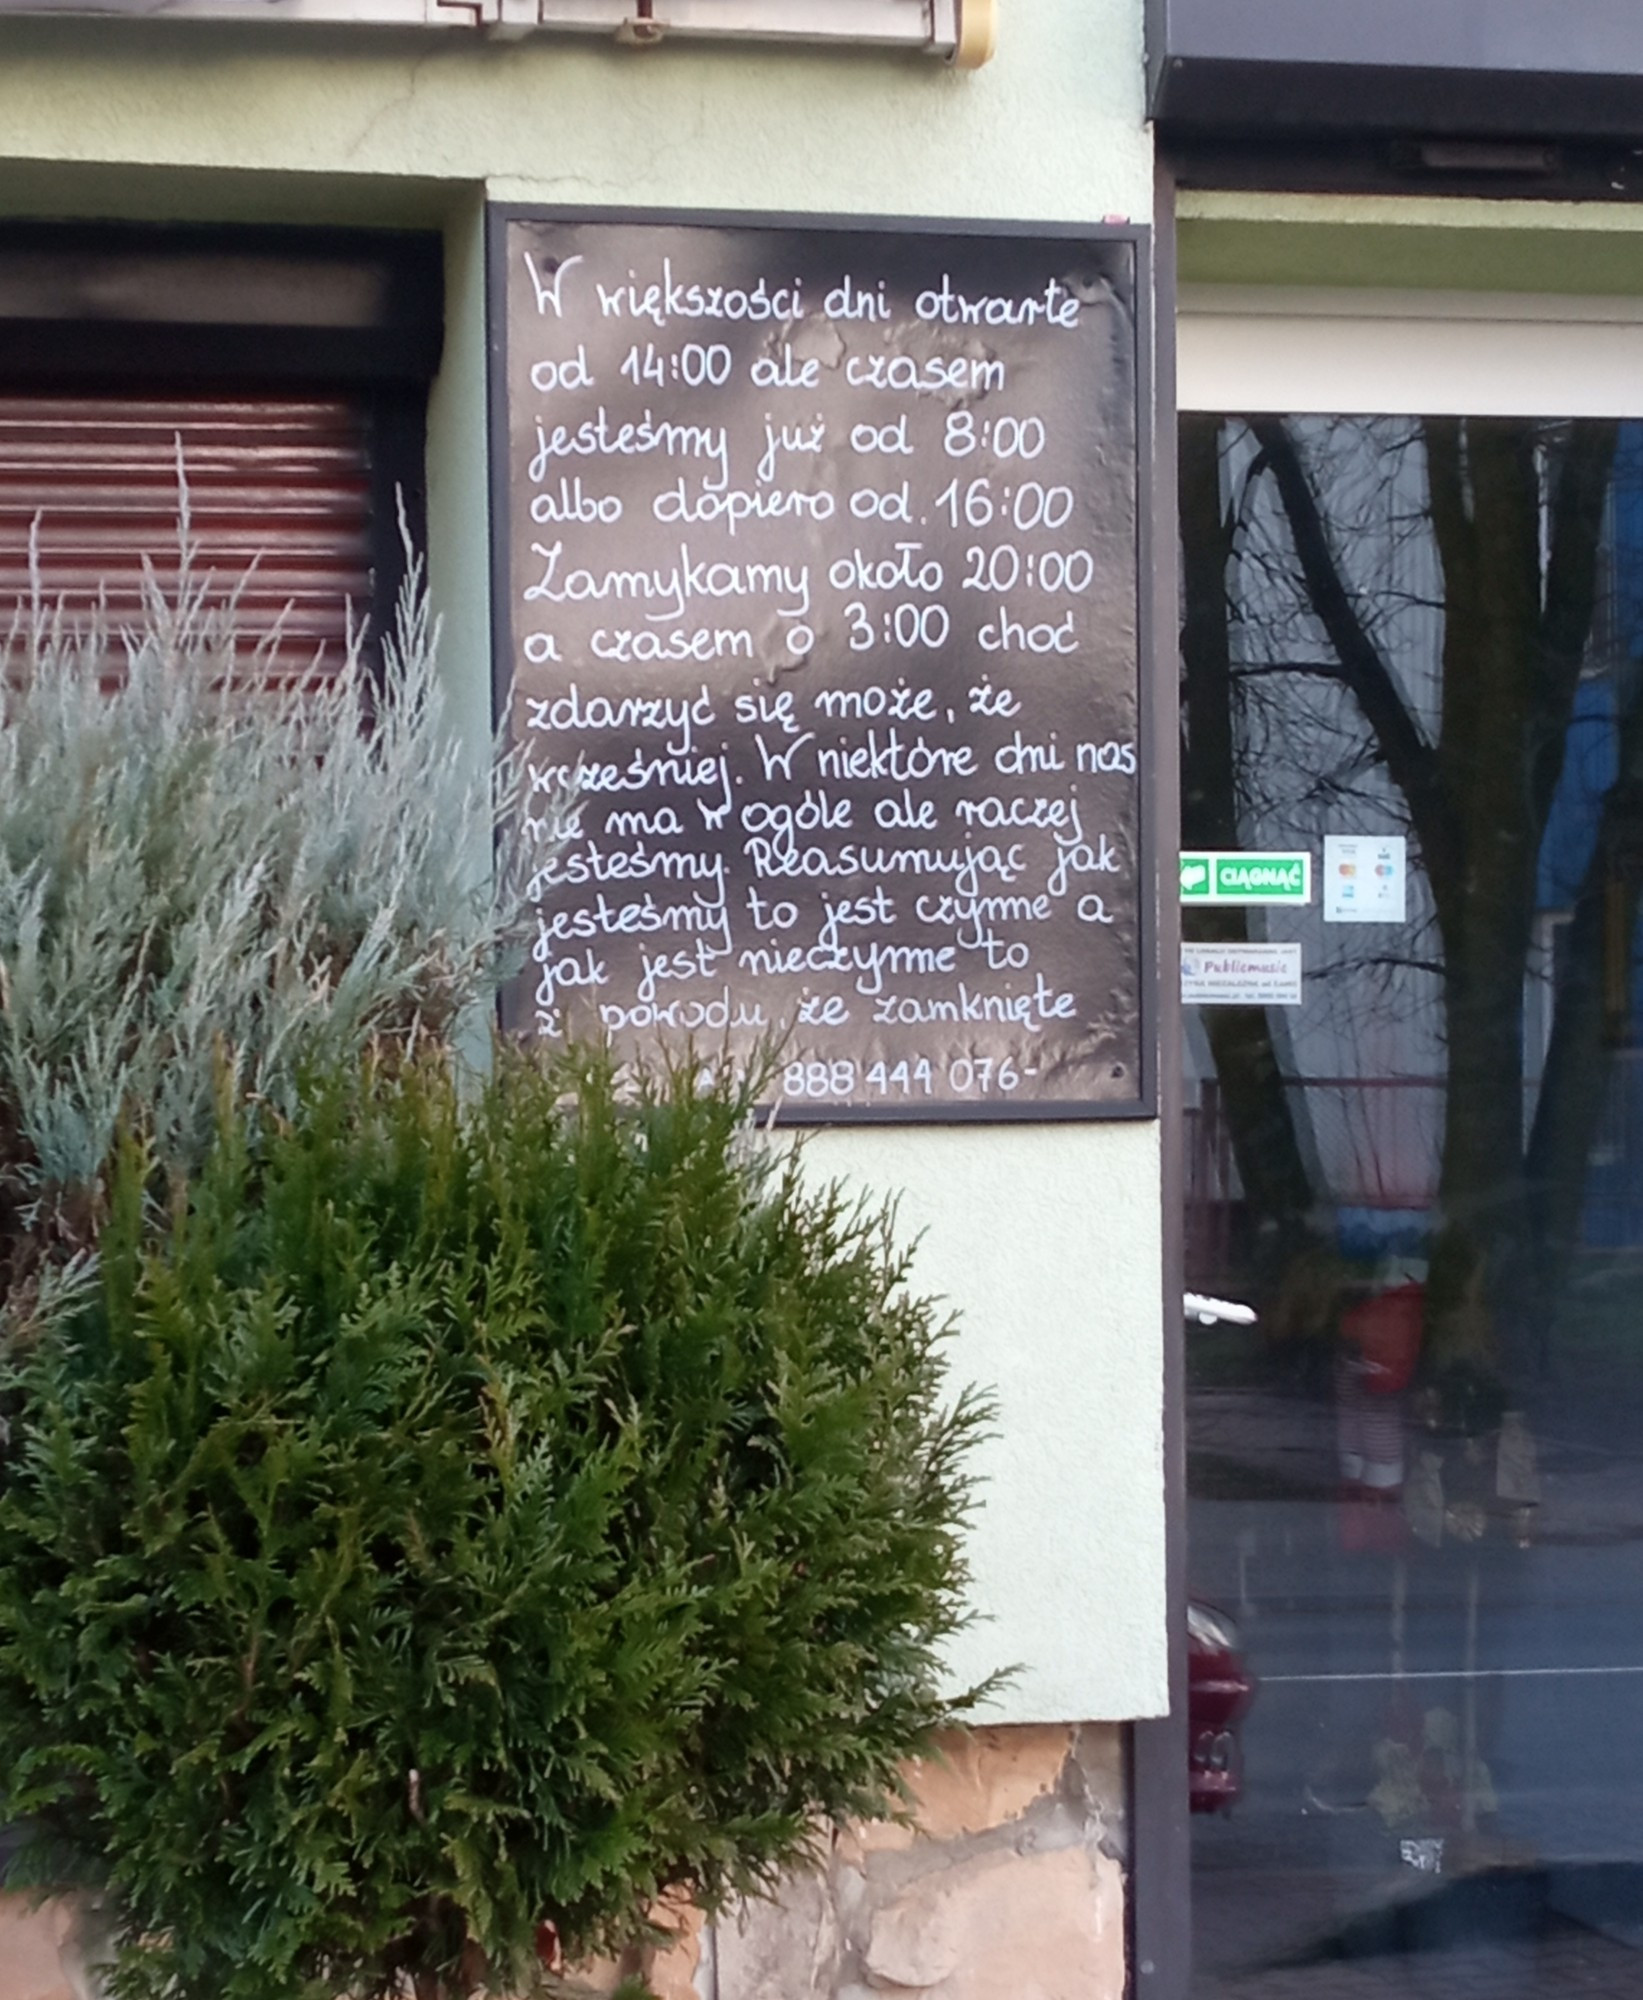 W większości dni otwarte
od 14:00 ale czasem
jesteśmy już od 8:00
albo dopiero od. 16:00
Zamykamy około 20:00
a czasem o 3:00 choć
zdarzyć się może, że
wcześniej. W niektóre dni nas
nie ma w ogóle ale raczej
jesteśmy. Reasumując jak
jesteśmy to jest czynne a
jak jest nieczynne to
z powodu, że zamknięte
888 444 076-
CIĄGNĄĆ
Publicmusic